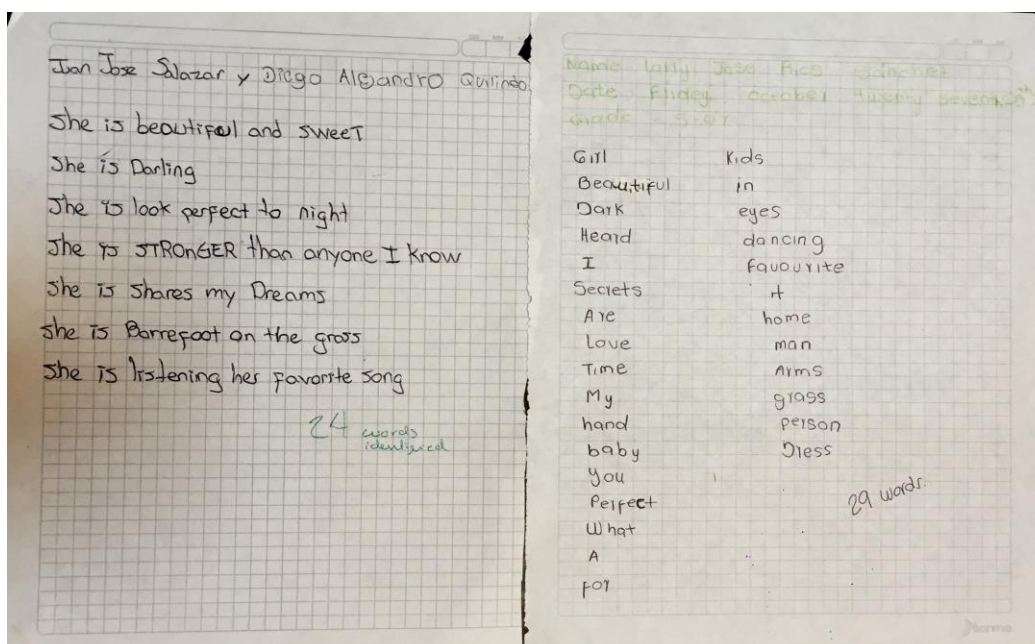 Juan Jose Salazar y Diego Alejandro Quilindo
She is beautiful and sweet
She is Darling
She is look perfect to night
She is STRONGER than anyone I know
She is Shares my Dreams
She is Barrefoot on the grass
She is listening her favorite song
24 words
identified
Name Jose Rios Sanchez
Date Friday october twenty seventh
Grade
Girl
Beautiful
Dark
Heard
I
Secrets
Are
Love
Time
My
hand
baby
You
Perfect
What
A
For
Kids
in
eyes
dancing
favourite
it
home
man
Arms
grass
person
Dress
29 words.
Norma